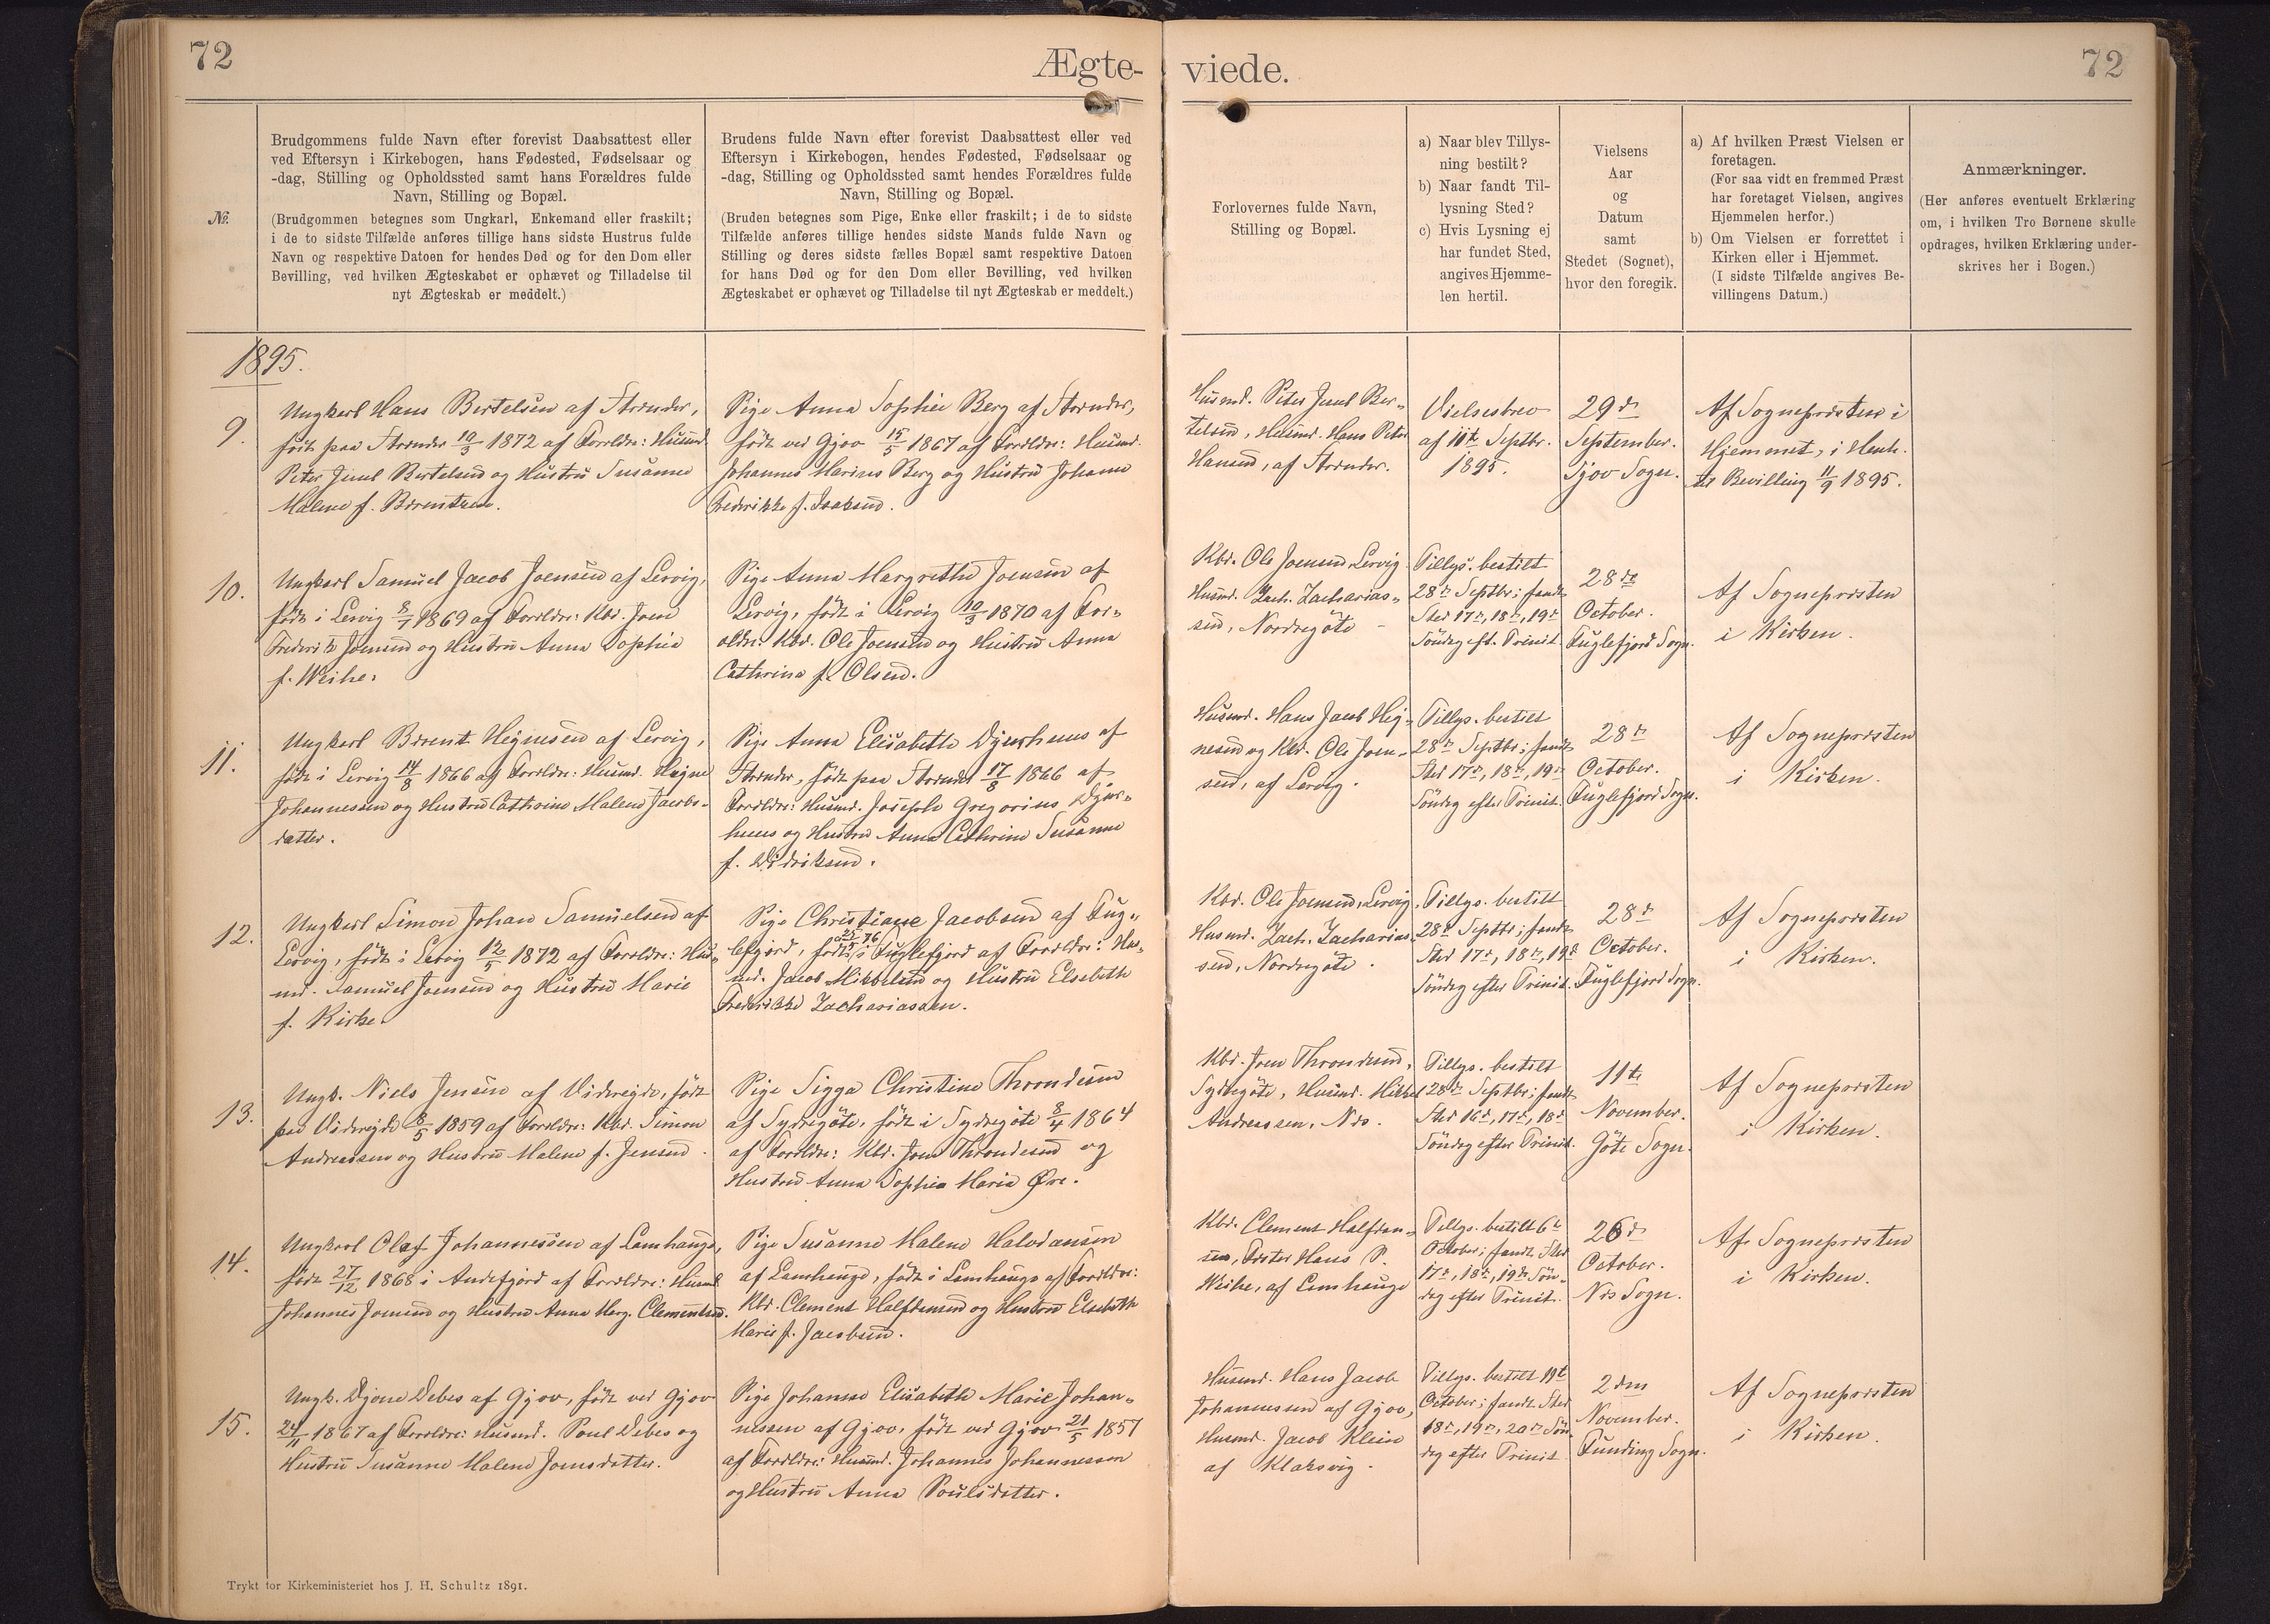 72
Ægte-
viede.
72
№.
Brudgommens fulde Navn efter forevist Daabsattest eller
ved Eftersyn i Kirkebogen, hans Fødested, Fødselsaar og
-dag, Stilling og Opholdssted samt hans Forældres fulde
Navn, Stilling og Bopæl.
(Brudgommen betegnes som Ungkarl, Enkemand eller fraskilt;
i de to sidste Tilfælde anføres tillige hans sidste Hustrus fulde
Navn og respektive Datoen for hendes Død og for den Dom eller
Bevilling, ved hvilken Ægteskabet er ophævet og Tilladelse til
nyt Ægteskab er meddelt.)
Brudens fulde Navn efter forevist Daabsattest eller ved
Eftersyn i Kirkebogen, hendes Fødested, Fødselsaar og
-dag, Stilling og Opholdssted samt hendes Forældres fulde
Navn, Stilling og Bopæl.
(Bruden betegnes som Pige, Enke eller fraskilt; i de to sidste
Tilfælde anføres tillige hendes sidste Mands fulde Navn og
Stilling og deres sidste fælles Bopæl samt respektive Datoen
for hans Død og for den Dom eller Bevilling, ved hvilken
Ægteskabet er ophævet og Tilladelse til nyt Ægteskab er meddelt.)
Forlovernes fulde Navn,
Stilling og Bopæl.
a) Naar blev Tillys-
ning bestilt?
b) Naar fandt Til-
lysning Sted?
c) Hvis Lysning ej
har fundet Sted,
angives Hjemme-
len hertil.
Vielsens
Aar
og
Datum
samt
Stedet (Sognet),
hvor den foregik.
a) Af hvilken Præst Vielsen er
foretagen.
(For saa vidt en fremmed Præst
har foretaget Vielsen, angives
Hjemmelen herfor.)
b) Om Vielsen er forrettet i
Kirken eller i Hjemmet.
(I sidste Tilfælde angives Be-
villingens Datum.)
Anmærkninger.
(Her anføres eventuelt Erklæring
om, i hvilken Tro Børnene skulle
opdrages, hvilken Erklæring under-
skrives her i Bogen.)
1895.
9.
Ungkarl Hans Bertelsen af Strender,
født paa Strender 10/3 1872 af Forældre: Husmd.
Peter Juul Bertelsen og Hustru Susanne
Malene f. Berentsen.
Pige Anna Sophie Berg af Strender,
født ved Gjov 15/5 1867 af Forældre: Husmd.
Johannes Marius Berg og Hustru Johanne
Frederikke f. Isaksen.
Husmd. Peter Juul Ber-
telsen, Husmd. Hans Peter
Hansen, af Strender.
Vielsesbrev
af 11te Septbr.
1895.
29de
September.
Sjov Sogn.
Af Sognepræsten i
Hjemmet, i Henh.
til Bevilling 11/9 1895.
10.
Ungkarl Samuel Jacob Joensen af Lervig,
født i Lervig 8/7 1869 af Forældre: Kbd. Joen
Frederik Joensen og Hustru Anna Sophia
f. Weihe.
Pige Anna Margrethe Joensen af
Lervig, født i Lervig 10/3 1870 af For-
ældre: Kbd. Ole Joensen og Hustru Anna
Cathrina f. Olsen.
Kbd. Ole Joensen, Lervig
Husmd. Zach. Zacharias-
sen, Nordregöte
Tillys. bestilt
28de Septbr; fandt
Sted 17de, 18de, 19de
Söndag eft. Trinit.
28de
October.
Fuglefjord Sogn.
Af Sognepræsten
i Kirken.
11.
Ungkarl Berent Heinesen af Lervig,
født i Lervig 14/8 1866 af Forældre: Husmd. Hejne
Johannessen og Hustru Cathrine Malene Jacobs-
datter.
Pige Anna Elisabeth Djurhuus af
Strender, født paa Strender 17/8 1866 af
Forældre: Husmd. Joseph Gregorius Djur-
huus og Hustru Anna Cathrine Susanne
f. Didriksen.
Husmd. Hans Jacob Hej-
nesen og Kbd. Ole Joen-
sen, af Lervig.
Tillys. bestilt
28de Septbr; fandt
Sted 17de, 18de, 19de
Söndag efter Trinit.
28de
October.
Fuglefjord Sogn.
Af Sognepræsten
i Kirken.
12.
Ungkarl Simon Johan Samuelsen af
Lervig, født i Lervig 12/5 1872 af Forældre: Hus-
md. Samuel Joensen og Hustru Marie
f. Kirke.
Pige Christiane Jacobsen af Fug-
lefjord, født i Fuglefjord af Forældre: Hus-
md. Jacob Mikkelsen og Hustru Elsebeth
Frederikke Zachariassen.
Kbd. Ole Joensen, Lervig,
Husmd. Zach. Zacharias-
sen, Nordregöte.
Tillys. bestilt
28de Septbr; fandt
Sted 17de, 18de, 19de
Söndag efter Trinit.
28de
October.
Fuglefjord Sogn.
Af Sognepræsten
i Kirken.
13.
Ungk. Niels Jensen af Videreide, født
paa Videreide 8/5 1859 af Forældre: Kbd. Simon
Andreassen og Hustru Malene f. Jensen.
Pige Sigga Christine Throndesen
af Sydregöte, født i Sydregöte 8/4 1864
af Forældre: Kbd. Joen Throndesen og
Hustru Anna Sophia Maria Øre.
Kbd. Joen Throndesen,
Sydregöte, Husmd. Mikkel
Andreassen, Næs.
Tillys. bestilt
28de Septbr; fandt
Sted 16de, 17de, 18de
Söndag efter Trinit.
11te
November.
Göte Sogn.
Af Sognepræsten
i Kirken.
14.
Ungkarl Olaf Johannessen af Lamhauge,
født 27/12 1868 i Andefjord af Forældre: Husmd.
Johannes Joensen og Hustru Anna Marg. Clementsen.
Pige Susanne Malene Halvdansen
af Lamhauge, født i Lamhauge af Forældre:
Kbd. Clement Halfdansen og Hustru Elsebeth
Marie f. Jacobsen.
Kbd. Clement Halfdan-
sen, Hans P.
Weihe, af Lamhauge
Tillys. bestilt 6te
October; fandt Sted
17de, 18de, 19de Sön-
dag efter Trinit.
26de
October.
Næs Sogn.
Af Sognepræsten
i Kirken.
15.
Ungk. Djone Debes af Gjov, født ved Gjov
24/11 1867 af Forældre: Husmd. Poul Debes og
Hustru Susanne Malene Joensdatter.
Pige Johanne Elisabeth Marie Johan-
nessen af Gjov, født ved Gjov 21/5 1857
af Forældre: Husmd. Johannes Johannessen
og Hustru Anna Poulsdatter.
Husmd. Hans Jacob
Johannessen af Gjov,
Husmd. Jacob Klein
af Klaksvig.
Tillys. bestilt 19de
October; fandt Sted
18de, 19de, 20de Sön-
dag efter Trinit.
2den
November.
Funding Sogn.
Af Sognepræsten
i Kirken.
Trykt for Kirkeministeriet hos J. H. Schultz 1891.